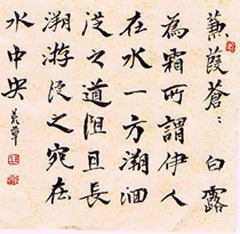 蒹葭蒼〻白露
為霜所謂伊人
在水一方溯洄
從之道阻且長
溯游從之宛在
水中央